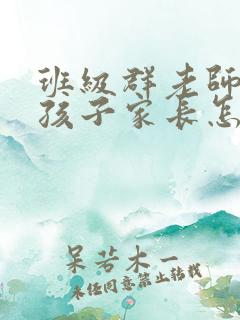 班級群老師
孩子家長怎
呆若木一
未经同意禁止转载